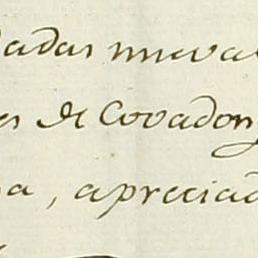 dadas nueva
es de Covadon
a, apreciad